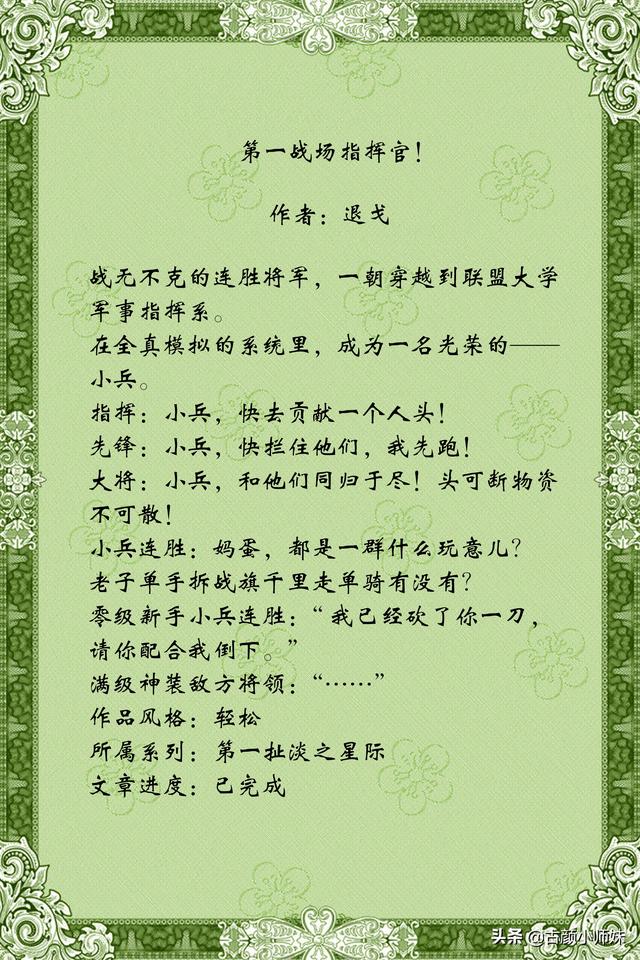 第一战场指挥官！
作者：退戈
战无不克的连胜将军，一朝穿越到联盟大学
军事指挥系。
在全真模拟的系统里，成为一名光荣的——
小兵。
指挥：小兵，快去贡献一个人头！
先锋：小兵，快拦住他们，我先跑！
大将：小兵，和他们同归于尽！头可断物资
不可散！
小兵连胜：妈蛋，都是一群什么玩意儿？
老子单手拆战旗千里走单骑有没有？
零级新手小兵连胜：“我已经砍了你一刀，
请你配合我倒下。”
满级神装敌方将领：“……”
作品风格：轻松
所属系列：第一扯淡之星际
文章进度：已完成
头条 @古颜小师妹